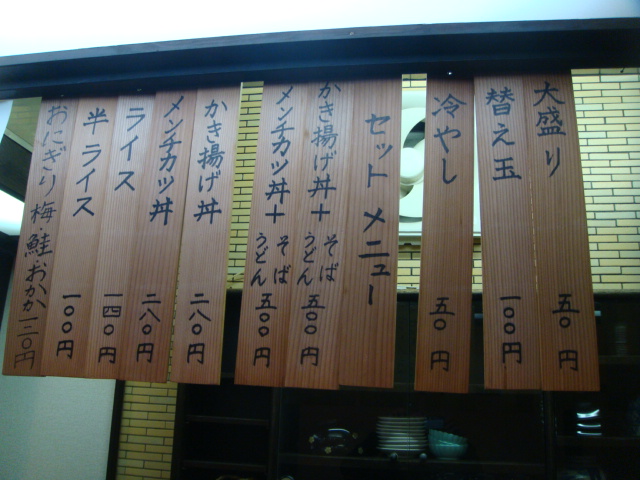 大盛り 五〇円
替え玉 一〇〇円
冷やし 五〇円
セットメニュー
かき揚げ丼+そば うどん 五〇〇円
メンチカツ丼+そば うどん 五〇〇円
かき揚げ丼 二八〇円
メンチカツ丼 二八〇円
ライス 一四〇円
半ライス 一〇〇円
おにぎり 梅・鮭・おかか 一二〇円